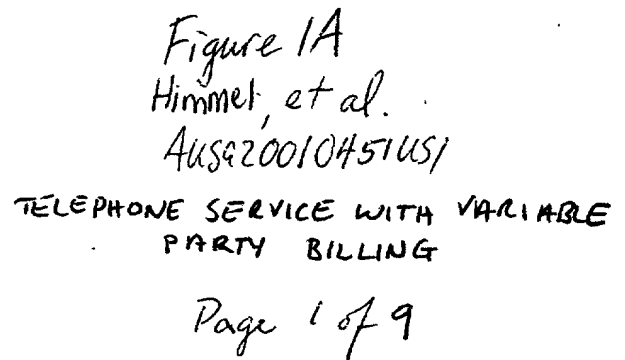 Figure 1A
Himmel, et al.
AUS920010451US1
TELEPHONE SERVICE WITH VARIABLE
PARTY BILLING
Page 1 of 9